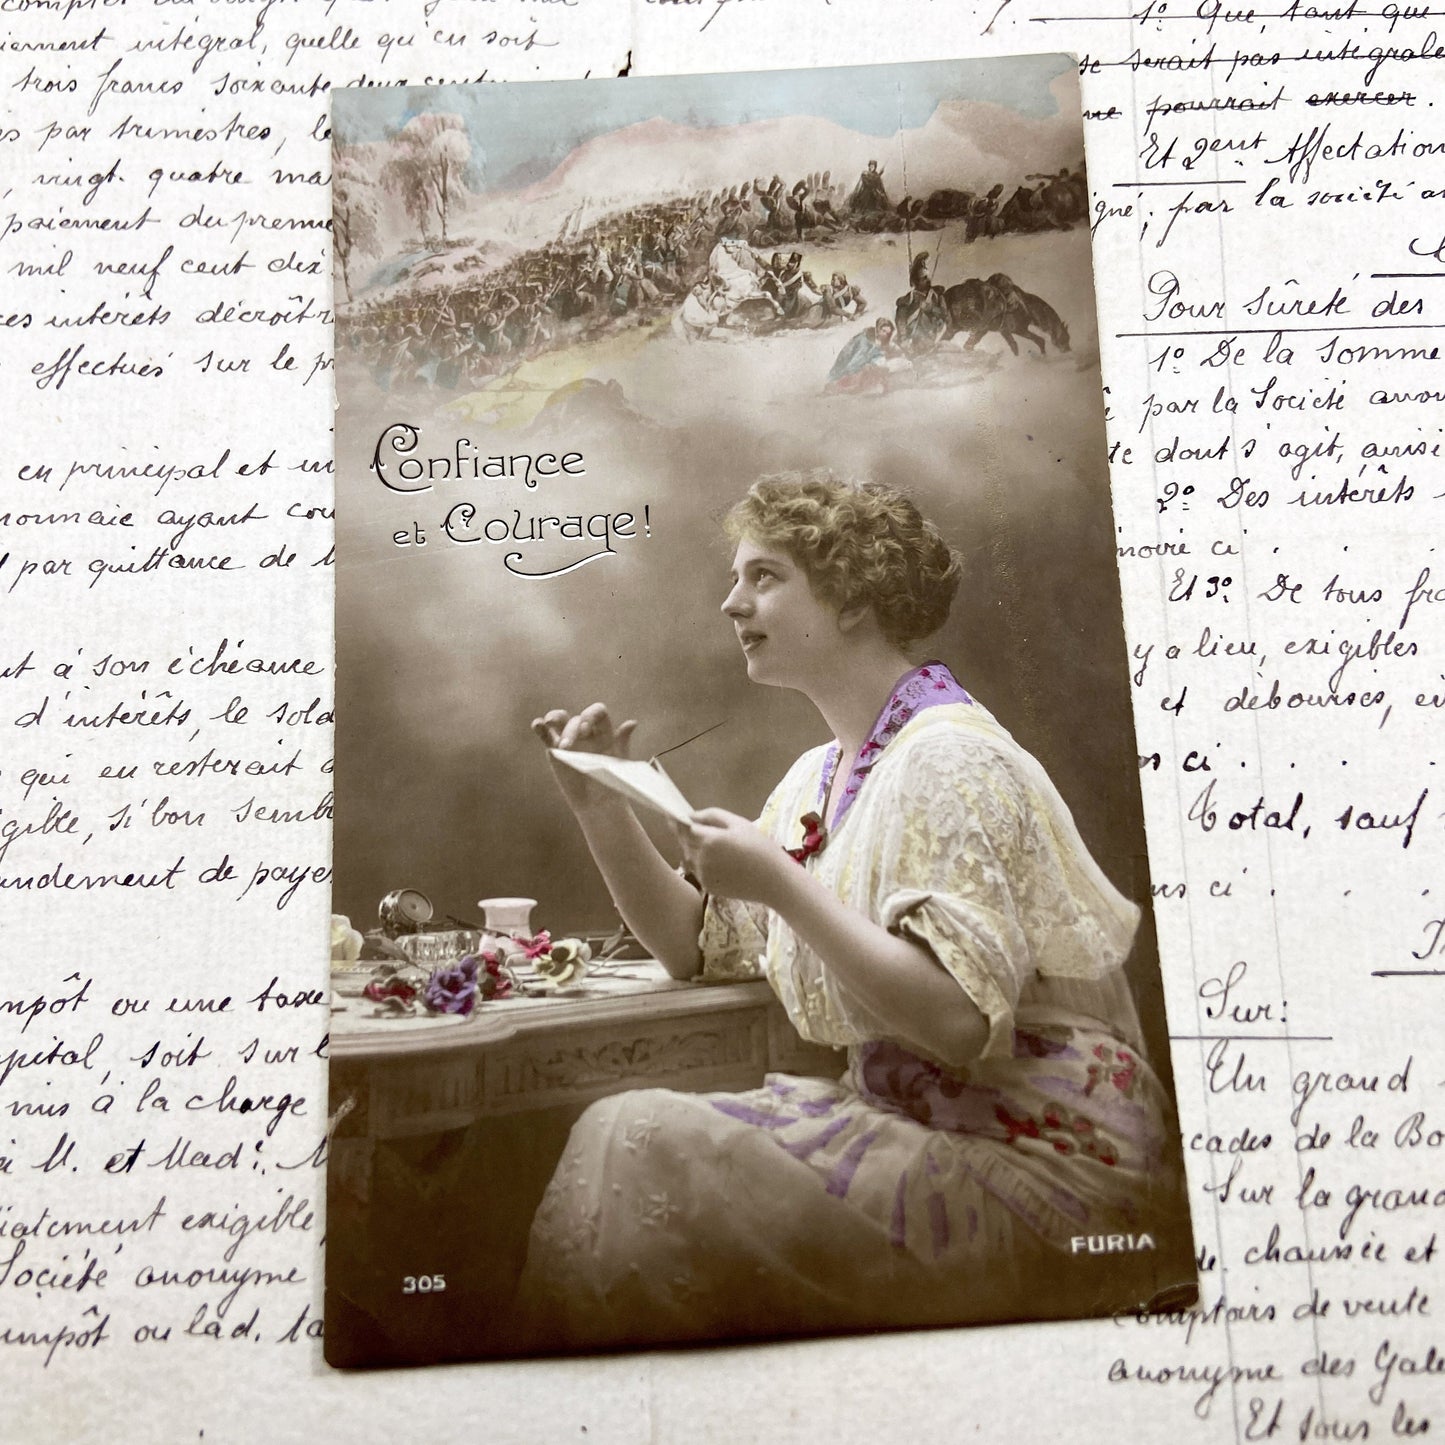 compter du vingt
iement intégral, quelle qu'en soit
trois francs soixante deux cent
s par trimestres, le
, vingt. quatre ma
paiement du premie
mil neuf cent dix
ces intérêts décroîtr
effectués sur le pr
en principal et in
monnaie ayant cou
par quittance de l
nt à son échéance
d'intérêts, le sold
qui en resterait d
gible, si bon semb
andement de payer
mpôt ou une taxe
pital, soit sur l
mis à la charge
M. et Mad.
iatement exigible,
Société anonyme
impôt ou lad. ta
Confiance
et Courage!
305
FURIA
1° Que, tant que
se serait pas intégrale
ne pourrait exercer.
Et 2ent Affectation
gné, par la société an
Pour sûreté des
1° De la somme
par la Société anon
te dont s'agit, ainsi
2° Des intérêts
moire ci . . .
Et 3° De tous fra
y a lieu, exigibles
et débourses, en
ns ci . . .
Total, sauf
ns ci . . .
Sur:
Un grand
cades de la Bo
Sur la grand
de chaussée et
comptoirs de vente
anonyme des Gale
Et tous les